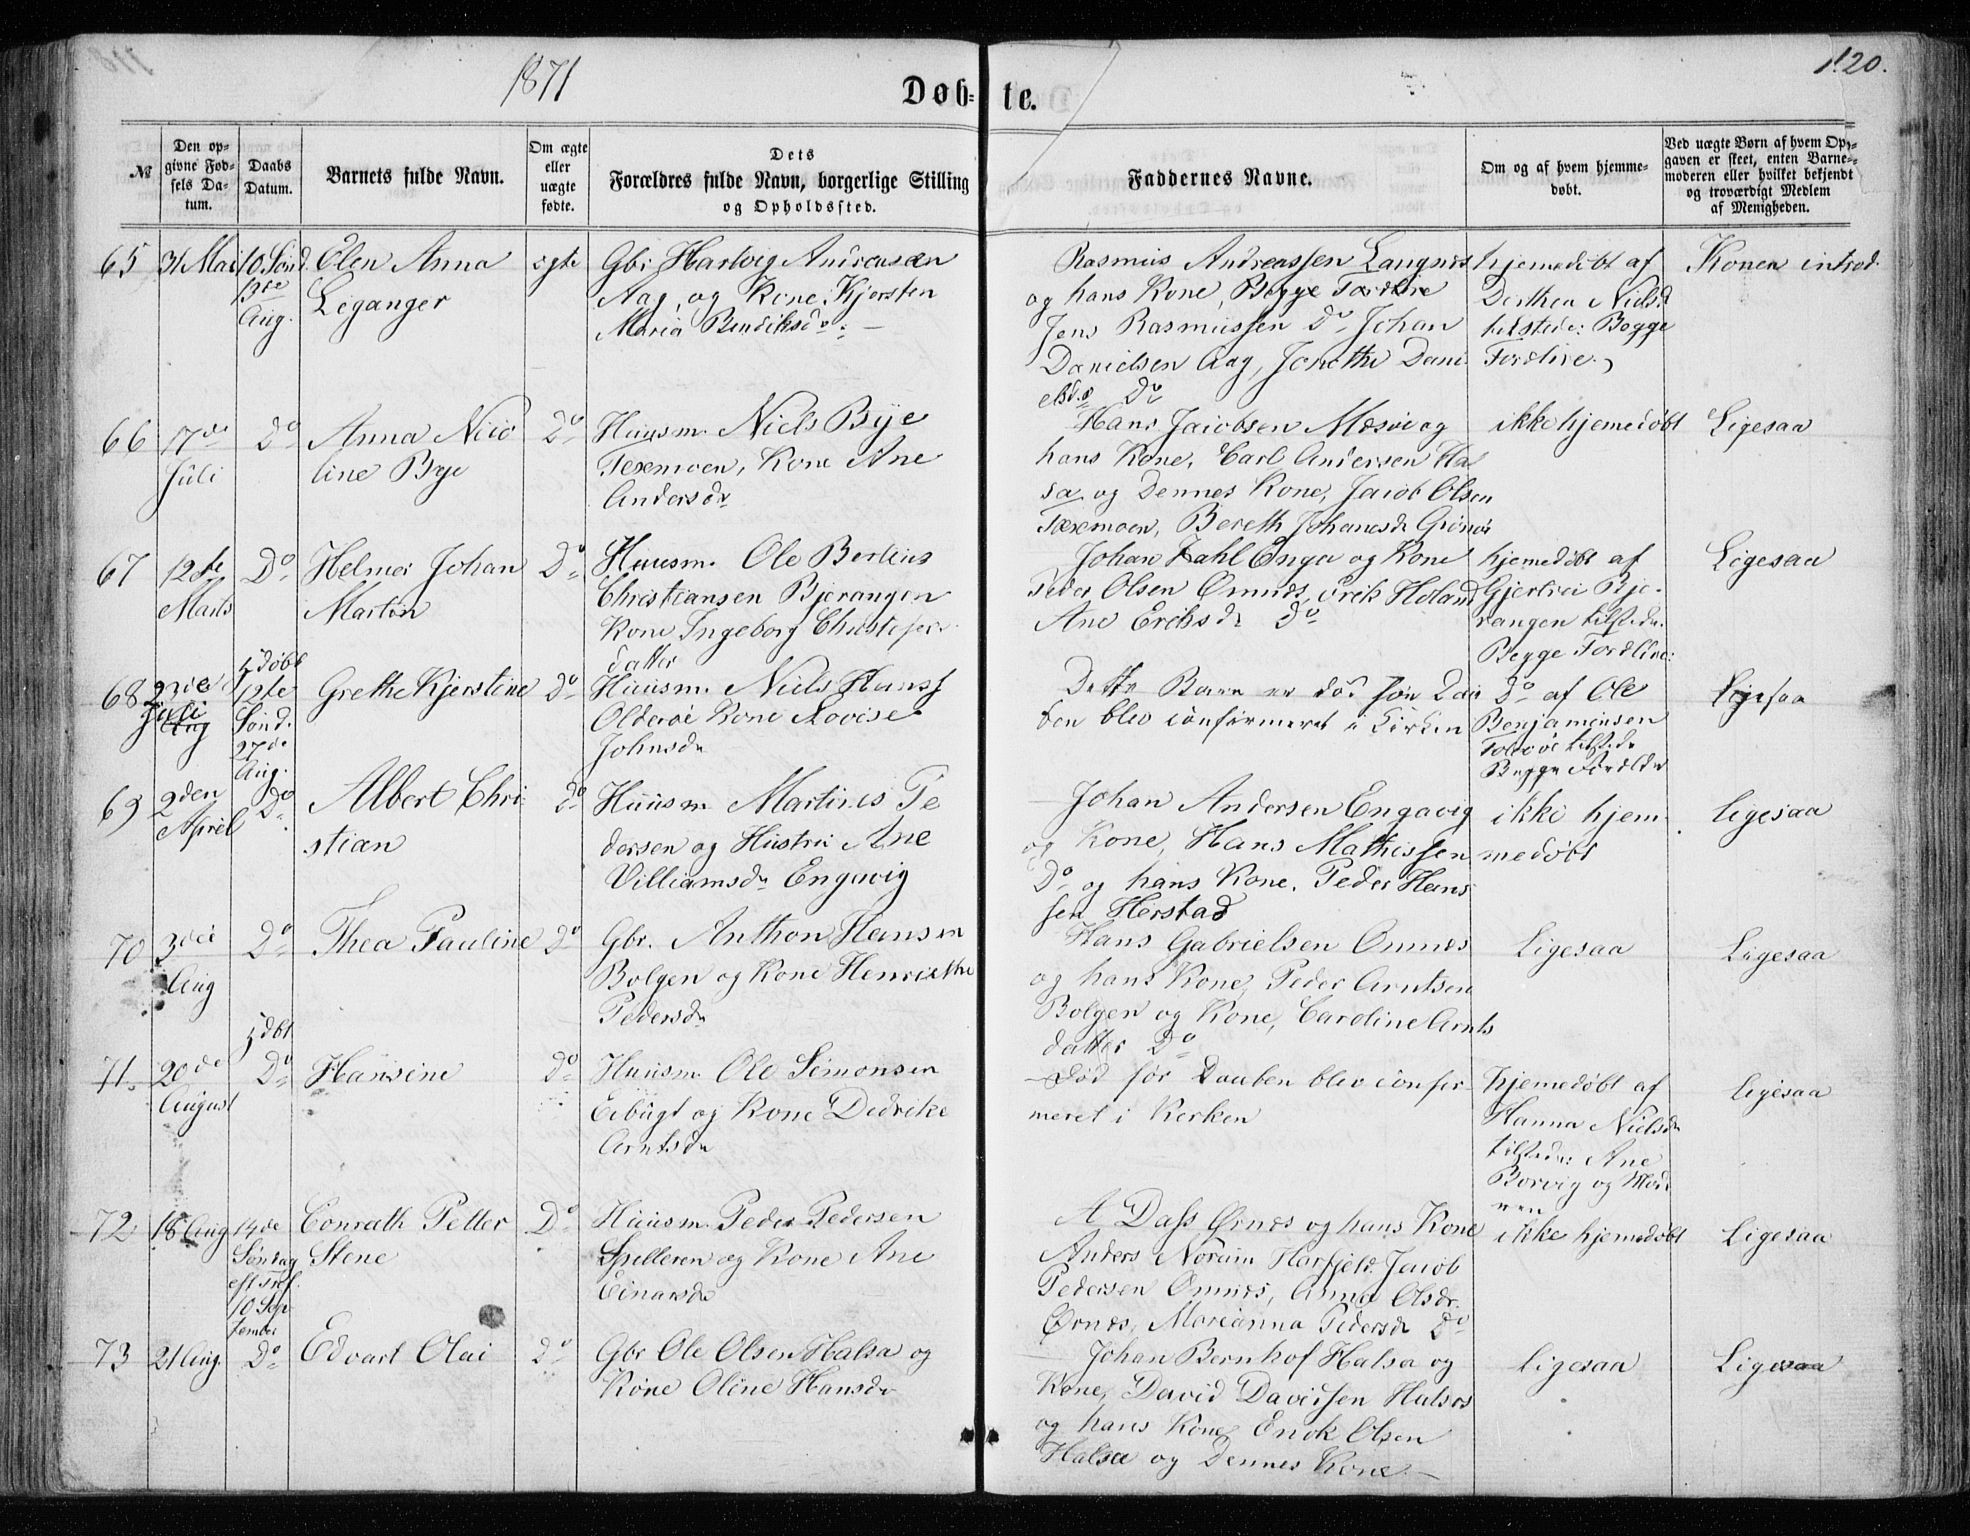 1871
Døb-
te.
120.
№
Den op-
givne Fød-
sels Da-
tum.
Daabs
Datum.
Barnets fulde Navn.
Om ægte
eller
uægte
fødte.
Dets
Forældres fulde Navn, borgerlige Stilling
og Opholdssted.
Faddernes Navne.
Om og af hvem hjemme-
døbt.
Ved uægte Børn af hvem Op-
gaven er skeet, enten Barne-
moderen eller hvilket bekjendt
og troværdigt Medlem
af Menigheden.
65
31 Mai
10 Sønd.
13de
Aug.
Elen Anna
Leganger
ægte
Gbr. Hartvig Andreasen
Aag, og Kone, Kjersten
Maria Bendiksdr.
Rasmus Andreassen Langnes
og hans Kone, Begge Fordlire
Jens Rasmussen Do Johan
Danielsen Aag, Jonethe Dani
elsd. Do
hjemedøbt af
Dorthea Nielsd
tilstede: Begge
Fordlire.
Konen introd.
66
17de
Juli
Do
Anna Nico
line Bye
Do
Huusm. Niels Bye
Texmoen, Kone Ane
Andersdr
Hans Jacobsen Mesøi og
hans Kone, Carl Andersen Ha
sa og Dennes Kone, Jacob Olsen
Texmoen, Bereth Johanesdr Grønøi
ikke hjemedøbt
Ligesaa
67
12te
Marts
Do
Helmer Johan
Martin
Do
Huusm. Ole Bertius
Christiansen Bjerangen
Kone Ingeborg Christofer
datter
Johan Zahl Enga og Kone
Peder Olsen Ømnes, Erik Holand
Ane Eriksdr Do
hjemedøbt af
Gjertrei Bje-
rangen tilstede.
Begge Fordlire:
Ligesaa
68
2den
Juli
Aug
døbt
12te
Sønd.
27de
Aug.
Grethe Kjerstine
Do
Huusm. Niels Hanss
Olderøe Kone Lovise
Johnsdr
Dette Barn er død før Daa
ben blev confirmeret i Kirken
Do af Ole
Benjaminsen
tilstede
Begge Forældre
Ligesaa
69
2den
April
Do
Albert Chri
stian
Do
Huusm Martines Pe
dersen og Hustru Ane
Villiamsdr Engavig
Johan Andersen Engavig
og Kone, Hans Mathissen
Do og hans Kone. Peder Hans
sen Herstad
ikke hjem-
medøbt
Ligesaa
70
3die
Aug
Do
Thea Pauline
Do
Gbr. Anthon Hansen
Bolgen og Kone Henriethe
Pedersdr
Hans Gabrielsen Ømnes
og hans Kone, Peder Arntsen
Bolgen og Kone, Caroline Arnts
datter Do
Ligesaa
Ligesaa
71.
20de
August
døbt
Do
Hansine
Do
Huusm. Ole Simonsen
Eibugt og Kone Didrike
Arntsdr
Død før Daaben blev confir
meret i Kirken
hjemedøbt af
Hanna Nielsdr
tilstede: Ane
Borvig og Mod
ren
Ligesaa
72
18 Aug
14de
Søndag
eft. Tref.
10 Sep
tember
Conrath Petter
Stene
Do
Huusm. Peder Pedersen
Spilleren og Kone Ane
Einarsdr
A Dass Ørnes og hans Kone
Anders Norum Harfjeld. Jacob
Pedersen Ømnes, Anna Olsdr.
Ørnes, Marianna Pedersdr Do
ikke hjemedøbt
Ligesaa
73
21 Aug.
Do
Edvart Olai
Do
Gbr Ole Olsen Halsa og
Kone Oline Hansdr
Johan Bernhof Halsa og
Kone, David Davidsen Halsos
og hans Kone, Enok Olsen
Halsa og Dennes Kone.
Ligesaa
Ligesaa